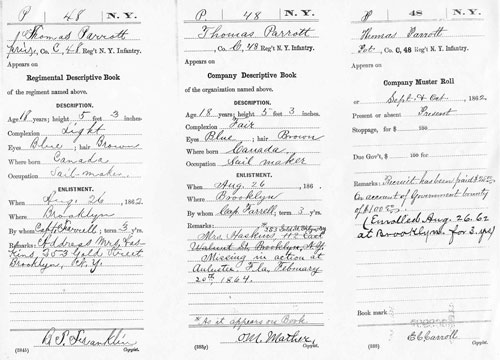 P 48 N.Y.
Thomas Parrott
Priv, Co. C, 48 Reg't N. Y. Infantry.
Appears on
Regimental Descriptive Book
of the regiment named above.
DESCRIPTION.
Age 18 years; height 5 feet 3 inches.
Complexion Light
Eyes Blue; hair Brown
Where born Canada
Occupation Sail maker
ENLISTMENT.
When Aug. 26, 1862.
Where Brooklyn
By whom Capt; term 3 y'rs.
Remarks: Address Mrs. Has-
kins, 253 Gold Street
Brooklyn, N.Y.
B. S. Franklin
Copyist.
P. 48 N.Y.
Thomas Parrott
Co. C, 48 Reg't N. Y. Infantry.
Appears on
Company Descriptive Book
of the organization named above.
DESCRIPTION.
Age 18 years; height 5 feet 3 inches.
Complexion Fair
Eyes Blue; hair Brown
Where born Canada
Occupation Sail maker
ENLISTMENT.
When Aug. 26, 186 .
Where Brooklyn
By whom Farrell; term 3 y'rs.
Remarks: 253 Gold St
Mrs. Haskins, 112 East
Walnut St, Brooklyn, N.Y.
Missing in action at
Fla, February
20th, 1864.
* As it appears on Book
O.M. Mather
Copyist.
P 48 N.Y.
Thomas Parrott
Pvt., Co. C, 48 Reg't N. Y. Infantry.
Appears on
Company Muster Roll
for Sept. & Oct, 1862.
Present or absent Present
Stoppage, for $ 100
Due Gov't, $ 100 for
Remarks: Recruit has been paid $25
on account of Government bounty
of $100.
(Enrolled Aug. 26. 62
at Brooklyn for 3 yrs)
Book mark:
E C Carroll
Copyist.